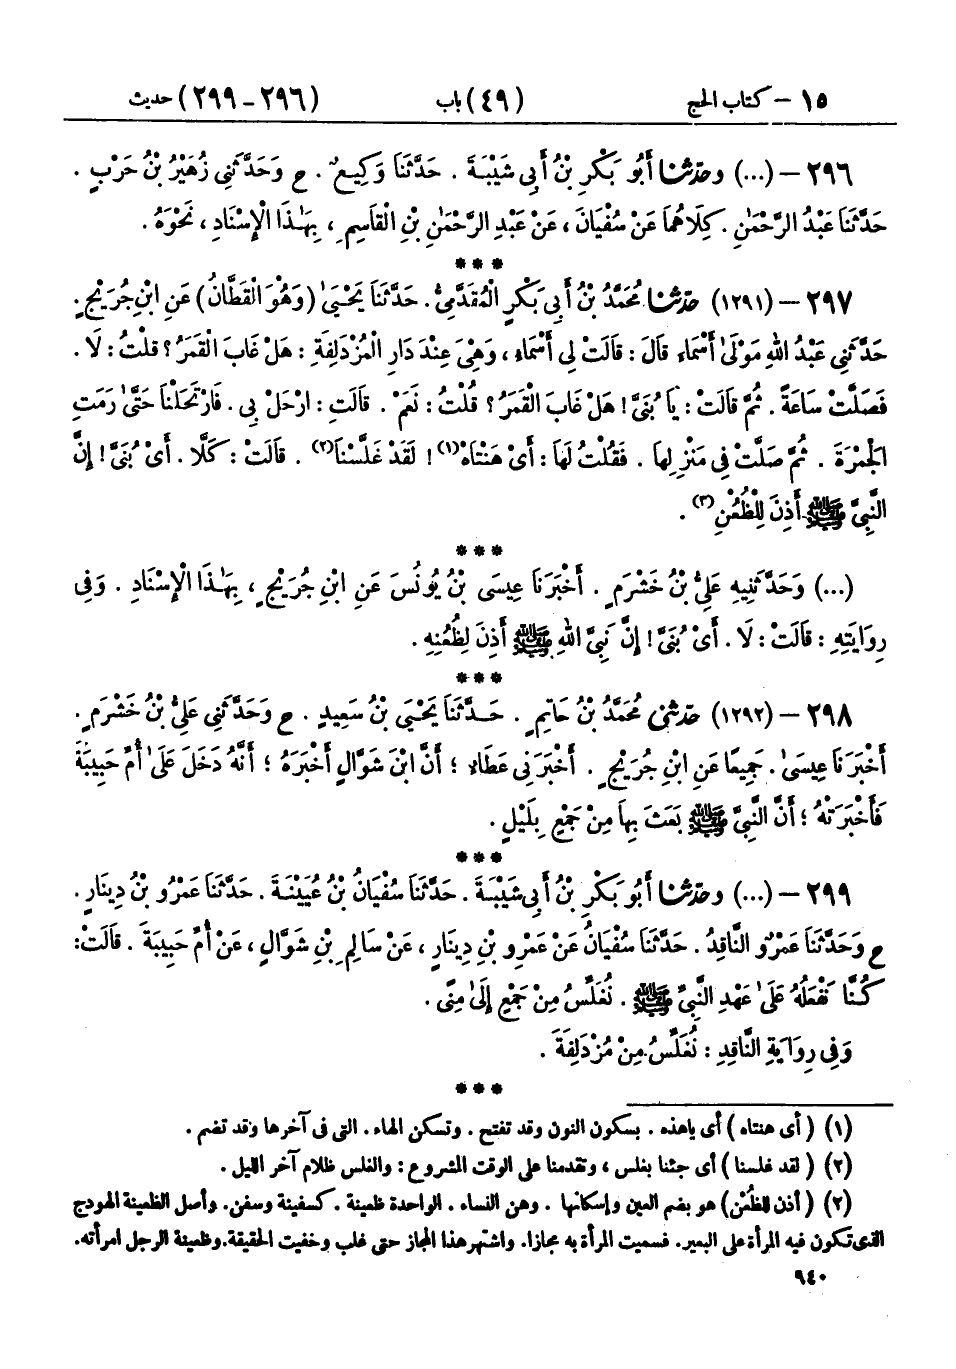 ١٥ – كتاب الحج (٤٩) باب (٢٩٦ - ٢٩٩) حديث
٢٩٦ – (...) وحَدَّثَنَا أَبُو بَكْرِ بْنُ أَبِي شَيْبَةَ . حَدَّثَنَا وَكِيعٌ . ح وَحَدَّثَنِي زُهَيْرُ بْنُ حَرْبٍ .
حَدَّثَنَا عَبْدُ الرَّحْمٰنِ . كِلَاهُمَا عَنْ سُفْيَانَ ، عَنْ عَبْدِ الرَّحْمٰنِ بْنِ الْقَاسِمِ ، بِهٰذَا الْإِسْنَادِ ، نَحْوَهُ .
***
٢٩٧ – (١٢٩١) حَدَّثَنَا مُحَمَّدُ بْنُ أَبِي بَكْرٍ الْمُقَدَّمِيُّ . حَدَّثَنَا يَحْيَىٰ (وَهُوَ الْقَطَّانُ) عَنِ ابْنِ جُرَيْجٍ .
حَدَّثَنِي عَبْدُ اللهِ مَوْلَىٰ أَسْمَاءَ قَالَ : قَالَتْ لِي أَسْمَاءُ ، وَهْيَ عِنْدَ دَارِ الْمُزْدَلِفَةِ : هَلْ غَابَ الْقَمَرُ ؟ قُلْتُ : لَا .
فَصَلَّتْ سَاعَةً . ثُمَّ قَالَتْ : يَا بُنَيَّ ! هَلْ غَابَ الْقَمَرُ ؟ قُلْتُ : نَعَمْ . قَالَتِ : ارْحَلْ بِي . فَارْتَحَلْنَا حَتَّىٰ رَمَتِ
الْجَمْرَةَ . ثُمَّ صَلَّتْ فِي مَنْزِلِهَا . فَقُلْتُ لَهَا : أَيْ هَنْتَاهْ(١) ! لَقَدْ غَلَّسْنَا(٢) . قَالَتْ : كَلَّا . أَيْ بُنَيَّ ! إِنَّ
النَّبِيَّ ﷺ أَذِنَ لِلظُّعُنِ(٣) .
***
(...) وَحَدَّثَنِيهِ عَلِيُّ بْنُ خَشْرَمٍ . أَخْبَرَنَا عِيسَى بْنُ يُونُسَ عَنِ ابْنِ جُرَيْجٍ ، بِهٰذَا الْإِسْنَادِ . وَفِي
رِوَايَتِهِ : قَالَتْ : لَا . أَيْ بُنَيَّ ! إِنَّ نَبِيَّ اللهِ ﷺ أَذِنَ لِظُعُنِهِ .
***
٢٩٨ – (١٢٩٢) حَدَّثَنِي مُحَمَّدُ بْنُ حَاتِمٍ . حَدَّثَنَا يَحْيَى بْنُ سَعِيدٍ . ح وَحَدَّثَنِي عَلِيُّ بْنُ خَشْرَمٍ .
أَخْبَرَنَا عِيسَىٰ . جَمِيعًا عَنِ ابْنِ جُرَيْجٍ . أَخْبَرَنِي عَطَاءٌ ؛ أَنَّ ابْنَ شَوَّالٍ أَخْبَرَهُ ؛ أَنَّهُ دَخَلَ عَلَىٰ أُمِّ حَبِيبَةَ
فَأَخْبَرَتْهُ ؛ أَنَّ النَّبِيَّ ﷺ بَعَثَ بِهَا مِنْ جَمْعٍ بِلَيْلٍ .
***
٢٩٩ – (...) وحَدَّثَنَا أَبُو بَكْرِ بْنُ أَبِي شَيْبَةَ . حَدَّثَنَا سُفْيَانُ بْنُ عُيَيْنَةَ . حَدَّثَنَا عَمْرُو بْنُ دِينَارٍ .
ح وَحَدَّثَنَا عَمْرٌو النَّاقِدُ . حَدَّثَنَا سُفْيَانُ عَنْ عَمْرِو بْنِ دِينَارٍ ، عَنْ سَالِمِ بْنِ شَوَّالٍ ، عَنْ أُمِّ حَبِيبَةَ . قَالَتْ :
كُنَّا نَفْعَلُهُ عَلَىٰ عَهْدِ النَّبِيِّ ﷺ . نُغَلِّسُ مِنْ جَمْعٍ إِلَىٰ مِنًى .
وَفِي رِوَايَةِ النَّاقِدِ : نُغَلِّسُ مِنْ مُزْدَلِفَةَ .
***
(١) ( أى هنتاه ) أى ياهذه . بسكون النون وقد تفتح . وتسكن الهاء . التى فى آخرها وقد تضم .
(٢) ( لقد غلسنا ) أى جئنا بغلس ، وتقدمنا على الوقت المشروع : والغلس ظلام آخر الليل .
(٣) ( أذن للظُعُن ) هو بضم العين وإسكانها . وهن النساء . الواحدة ظعينة . كسفينة وسفن . وأصل الظعينة الهودج
الذى تكون فيه المرأة على البعير . فسميت المرأة به مجازا . واشتهر هذا المجاز حتى غلب وخفيت الحقيقة . وظعينة الرجل امرأته .
٩٤٠